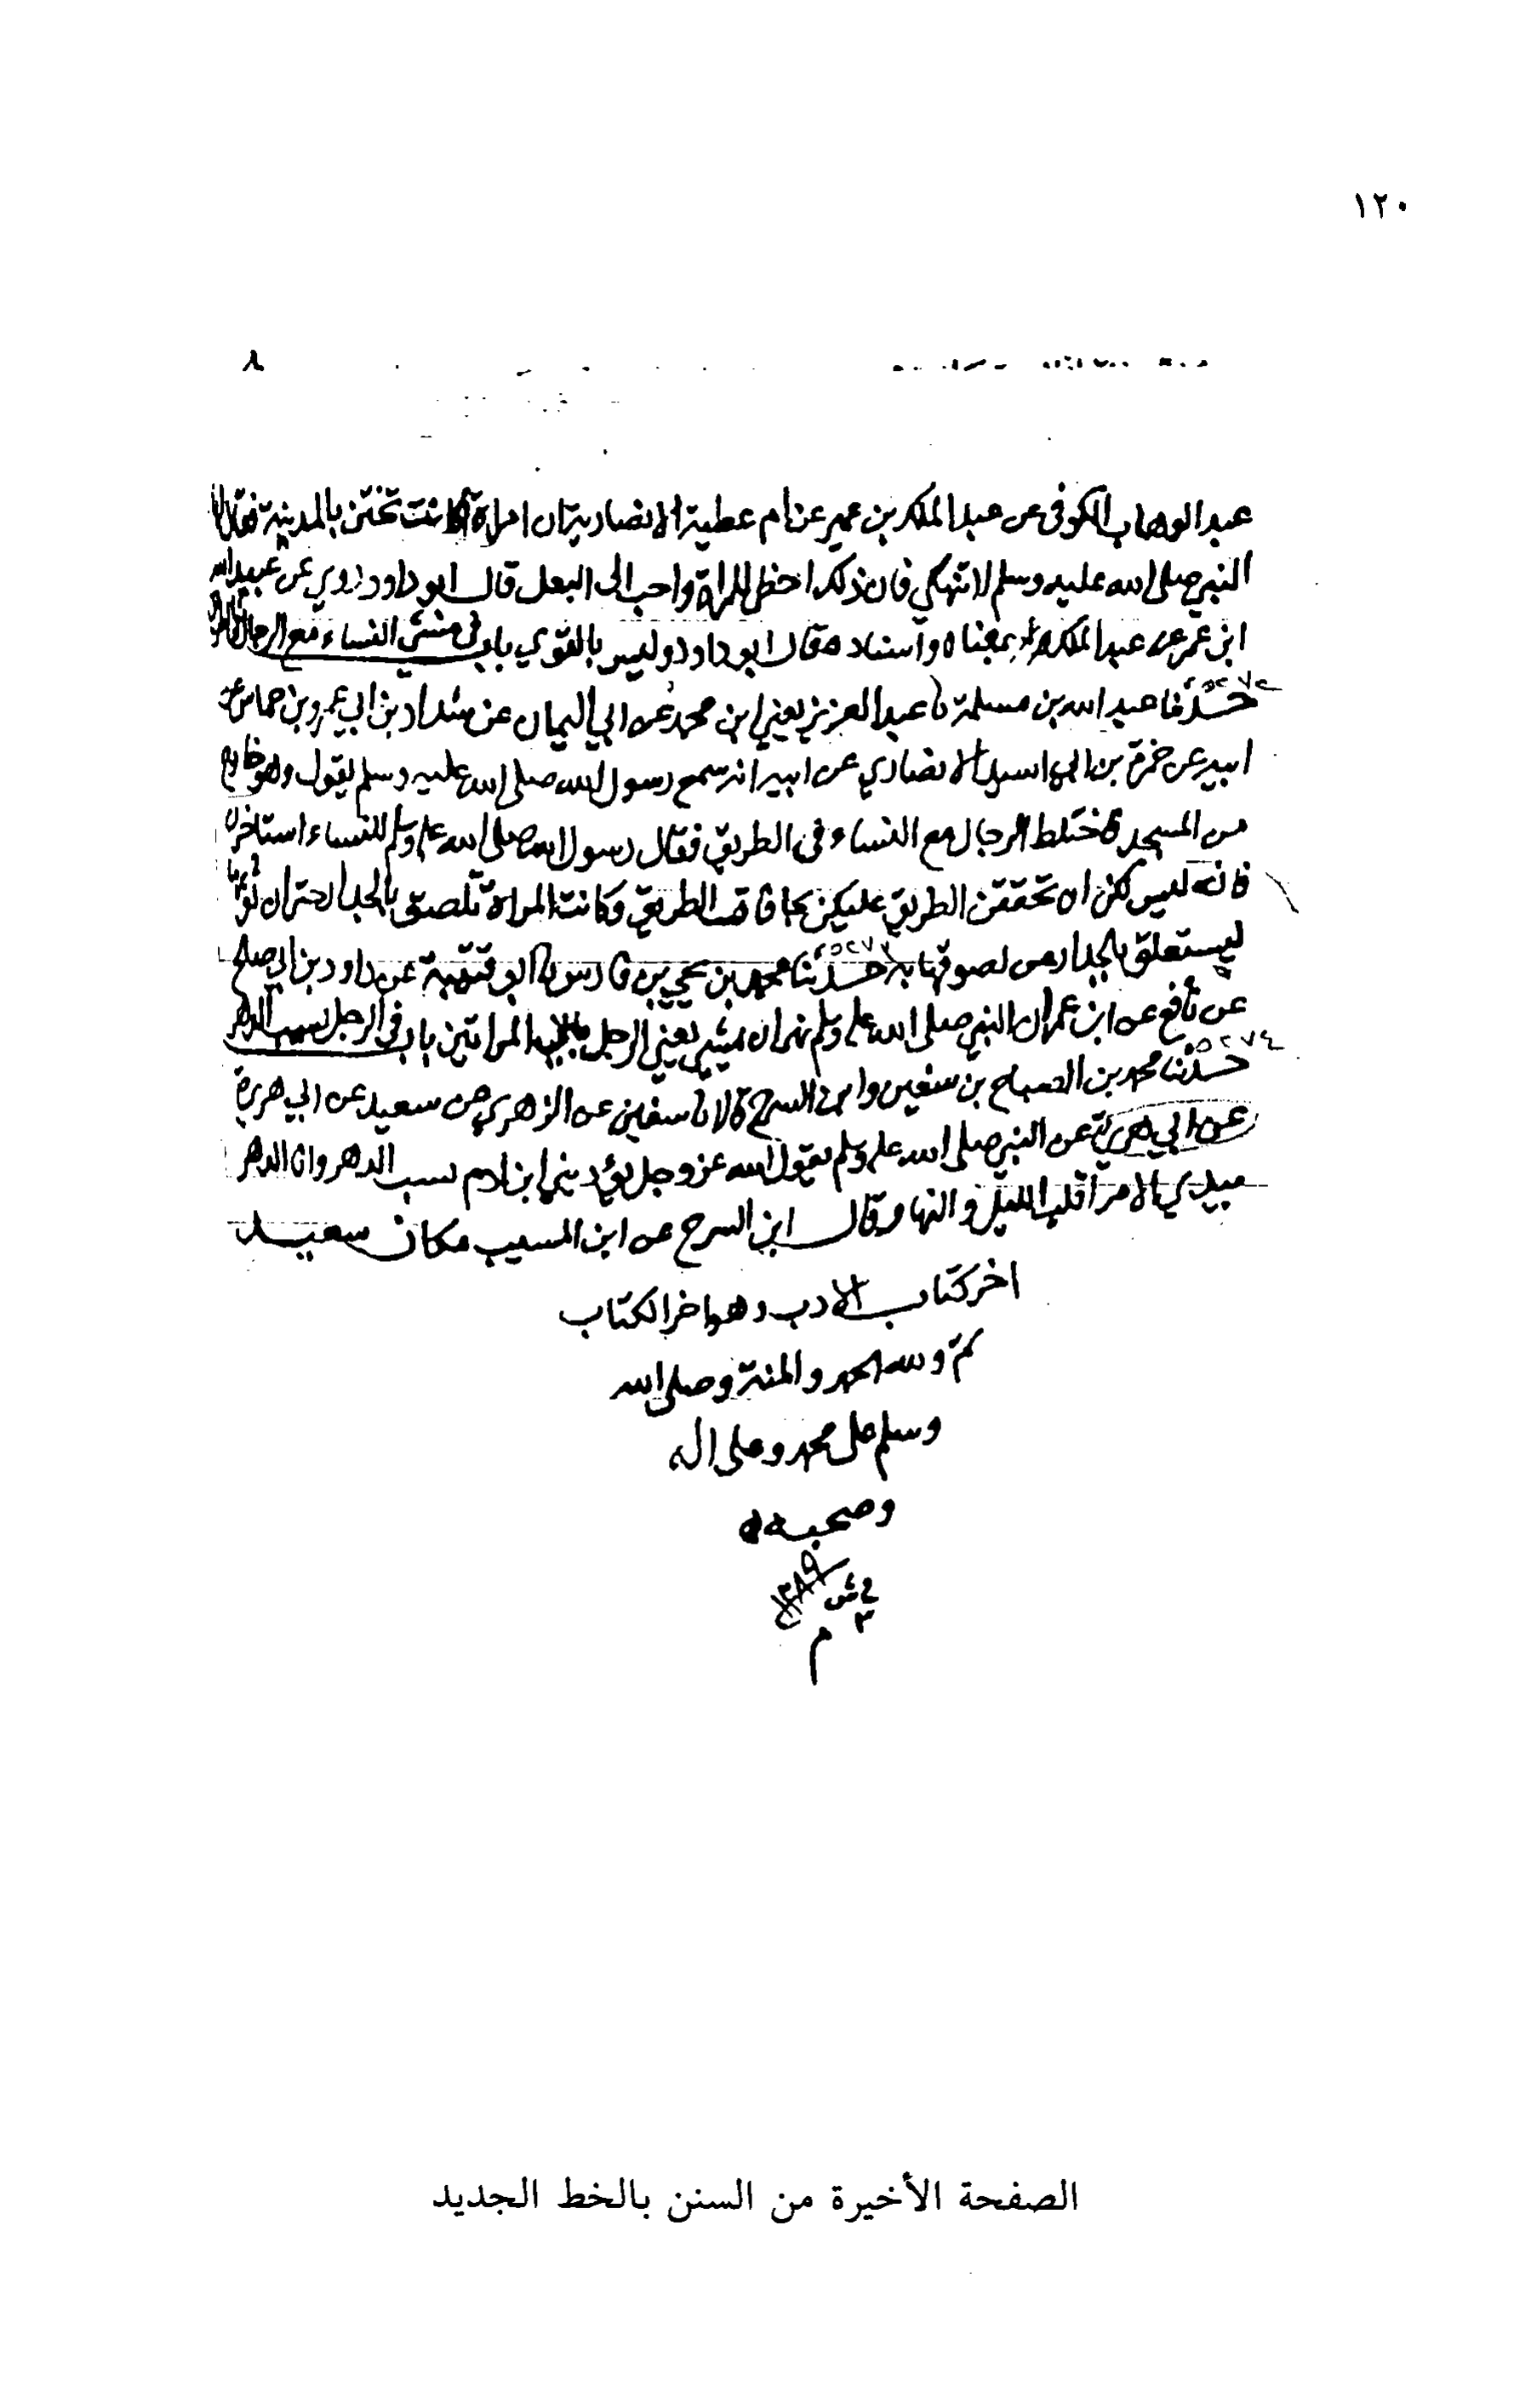 ١٢٠
٨
عبد الوهاب الكوفى عن عبد الملك بن عمير عن ام عطية الانصارية ان امراة كانت تختن بالمدينة فقال لها
النبي صلى الله عليه وسلم لا تنهكي فان ذلك احظى للمراة واحب الى البعل قال ابو داود روي عن عبيد الله
ابن عمر عن عبد الملك بمعناه واسناده قال ابو داود وليس بالقوي باب فى مشي النساء مع الرجال
٥٢٧٢
حدثنا عبد الله بن مسلمة نا عبد العزيز يعني ابن محمد عن ابي اليمان عن شداد بن ابي عمرو بن حماس عن
ابيه عن حمزة بن ابي اسيد الانصاري عن ابيه انه سمع رسول الله صلى الله عليه وسلم يقول وهو خارج
من المسجد فاختلط الرجال مع النساء فى الطريق فقال رسول الله صلى الله عليه وسلم للنساء استاخرن
فانه ليس لكن ان تحققن الطريق عليكن بحافات الطريق وكانت المراة تلصق بالجدار حتى ان ثوبها
ليستعلق بالجدار من لصوقها به حدثنا محمد بن يحيى بن فارس نا ابو قتيبة عن داود بن ابي صالح
٥٢٧٣
عن نافع عن ابن عمر ان النبي صلى الله عليه وسلم نهى ان يمشي يعني الرجل بين المراتين باب فى الرجل يسب الدهر
٥٢٧٤
حدثنا محمد بن الصباح بن سفين وابن السرح قالا نا سفين عن الزهري عن سعيد عن ابي هريرة
عن ابي هريرة عن النبي صلى الله عليه وسلم يقول الله عز وجل يؤذيني ابن ادم يسب الدهر وانا الدهر
بيدي الامر اقلب الليل والنهار وقال ابن السرح عن ابن المسيب مكان سعيد
اخر كتاب الادب وهو اخر الكتاب
تم ولله الحمد والمنة وصلى الله
وسلم على محمد وعلى اله
وصحبه
م
الصفحة الأخيرة من السنن بالخط الجديد